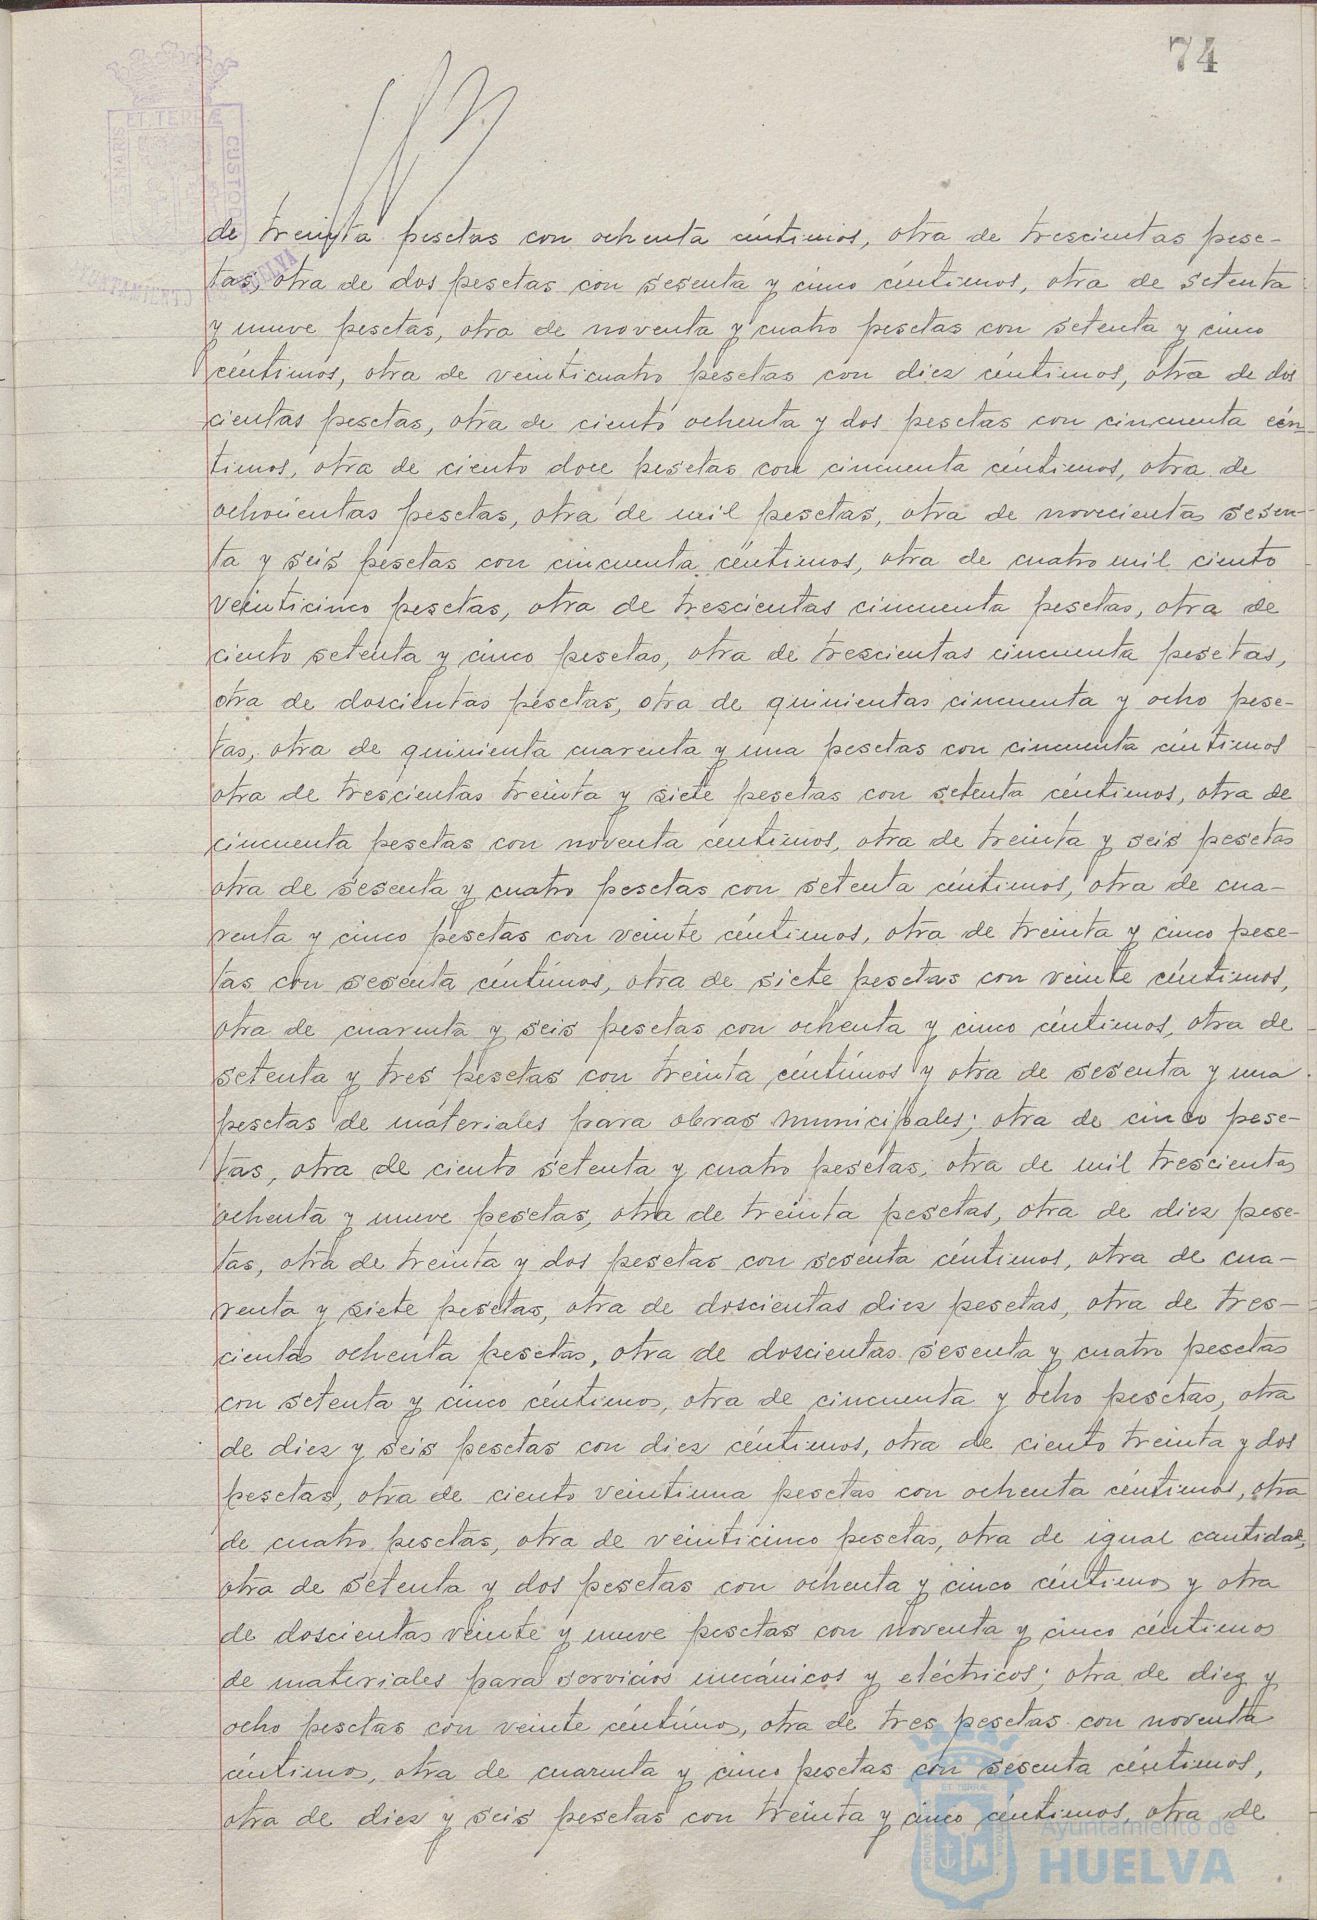 74
ET TERRÆ
S MARIS
CUSTOD
AYUNTAMIENTO DE HUELVA
de treinta pesetas con ochenta céntimos, otra de trescientas pese-
tas, otra de dos pesetas con sesenta y cinco céntimos, otra de setenta
y nueve pesetas, otra de noventa y cuatro pesetas con setenta y cinco
céntimos, otra de veinticuatro pesetas con diez céntimos, otra de dos
cientas pesetas, otra de ciento ochenta y dos pesetas con cincuenta cén-
timos, otra de ciento doce pesetas con cincuenta céntimos, otra de
ochocientas pesetas, otra de mil pesetas, otra de novecientas sesen-
ta y seis pesetas con cincuenta céntimos, otra de cuatro mil ciento
veinticinco pesetas, otra de trescientas cincuenta pesetas, otra de
ciento setenta y cinco pesetas, otra de trescientas cincuenta pesetas,
otra de doscientas pesetas, otra de quinientas cincuenta y ocho pese-
tas, otra de quinienta cuarenta y una pesetas con cincuenta céntimos
otra de trescientas treinta y siete pesetas con setenta céntimos, otra de
cincuenta pesetas con noventa céntimos, otra de treinta y seis pesetas
otra de sesenta y cuatro pesetas con setenta céntimos, otra de cua-
renta y cinco pesetas con veinte céntimos, otra de treinta y cinco pese-
tas con sesenta céntimos, otra de siete pesetas con veinte céntimos,
otra de cuarenta y seis pesetas con ochenta y cinco céntimos, otra de
setenta y tres pesetas con treinta céntimos y otra de sesenta y una
pesetas de materiales para obras municipales; otra de cinco pese-
tas, otra de ciento setenta y cuatro pesetas, otra de mil trescientas
ochenta y nueve pesetas, otra de treinta pesetas, otra de diez pese-
tas, otra de treinta y dos pesetas con sesenta céntimos, otra de cua-
renta y siete pesetas, otra de doscientas diez pesetas, otra de tres-
cientas ochenta pesetas, otra de doscientas sesenta y cuatro pesetas
con setenta y cinco céntimos, otra de cincuenta y ocho pesetas, otra
de diez y seis pesetas con diez céntimos, otra de ciento treinta y dos
pesetas, otra de ciento veintiuna pesetas con ochenta céntimos, otra
de cuatro pesetas, otra de veinticinco pesetas, otra de igual cantidad,
otra de setenta y dos pesetas con ochenta y cinco céntimos y otra
de doscientas veinte y nueve pesetas con noventa y cinco céntimos
de materiales para servicios mecánicos y eléctricos; otra de diez y
ocho pesetas con veinte céntimos, otra de tres pesetas con noventa
céntimos, otra de cuarenta y cinco pesetas con sesenta céntimos,
otra de diez y seis pesetas con treinta y cinco céntimos, otra de
Ayuntamiento de
HUELVA